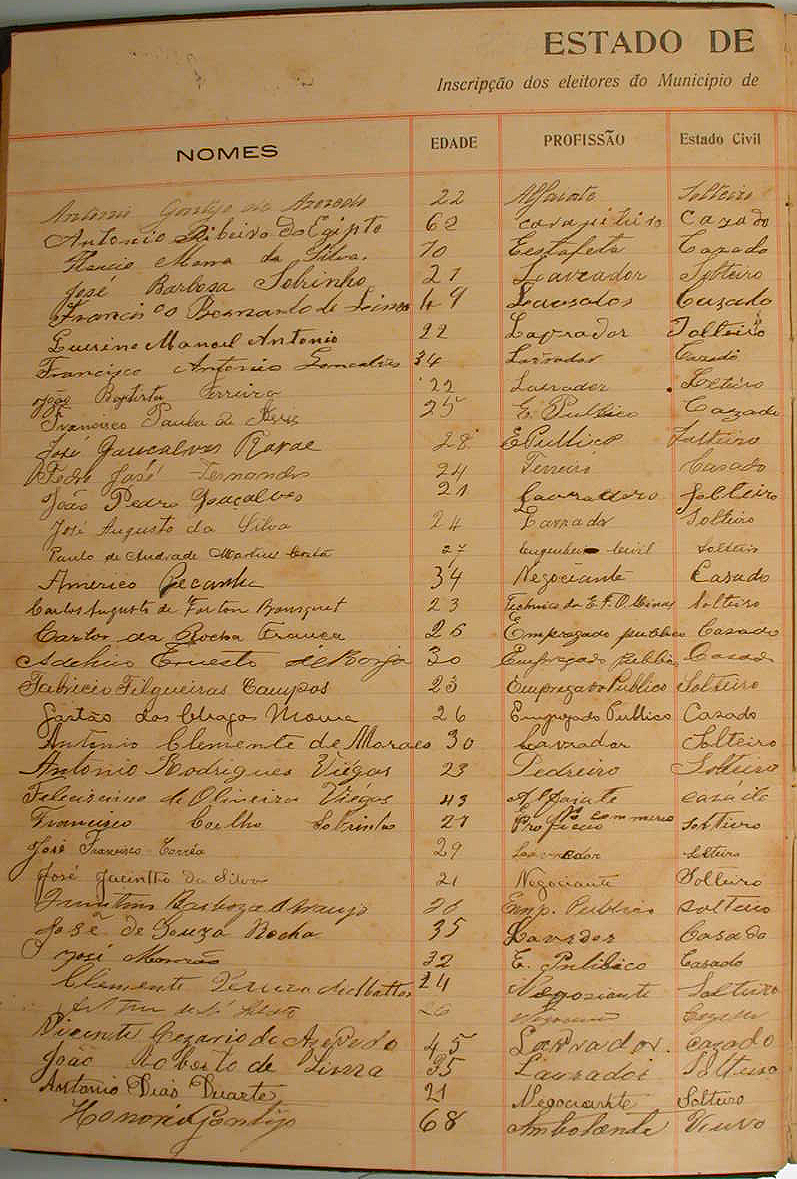 ESTADO DE
Inscripção dos eleitores do Municipio de
NOMES EDADE PROFISSÃO Estado Civil
Antonio Gontijo de Azevedo 22 Alfaiate Solteiro
Antonio Ribeiro do Egipto 62 carapiteiro Cazado
Maria da Silva 70 Estafeta Cazado
José Barbosa Sobrinho 27 Lavrador Solteiro
Francisco Bernardo de Lima 49 Cazado
Guerino Manoel Antonio 22 Lavrador Solteiro
Francisco Antonio Goncalves 34 Lavrador Cazado
João Baptista Ferreira 22 Lavrador
Francisco Paula de 25 E. Publico Cazado
José Gonçalves 28 E Publico Solteiro
Pedro José Fernandes 24 Ferreiro Casado
João Pedro Gonçalves 21 Solteiro
José Augusto da Silva 24 Lavrador Solteiro
Paulo de Andrade Martins Costa 27 Civil Solteiro
Americo Peçanha 34 Negociante Casado
Carlos Augusto de Bousquet 23 Technico da E.F.O. Minas Solteiro
Carlos da Rocha França 26 Empregado publico Casado
Ernesto de Borja 30 Empregado Publico Casado
Fabricio Filgueiras Campos 23 Empregado Publico Solteiro
Gastão dos Chagas Moura 26 Empregado Publico Cazado
Antonio Clemente de Moraes 30 Lavrador Solteiro
Antonio Rodrigues Viégas 23 Pedreiro Solteiro
de Oliveira Viégas 43 Alfaiate casádo
Francisco Coelho Sobrinho 27 commercio solteiro
José Francisco Corrêa 29 Lavrador solteiro
José Jacintho da Silva 21 Negociante Solteiro
Barboza d'Araujo Emp. Publico solteiro
José de Souza Rocha 35 Lavrador Casado
José 32 E. Publico Casado
Clemente de Mattos 24 Negosiante Solteiro
Vicente Cezario de Azevedo 45 Lavrador. cazado
João Roberto de Lima 35 Lavrador Solteiro
Antonio Dias Duarte 21 Negociante Solteiro
Honorio Gontijo 68 Viuvo